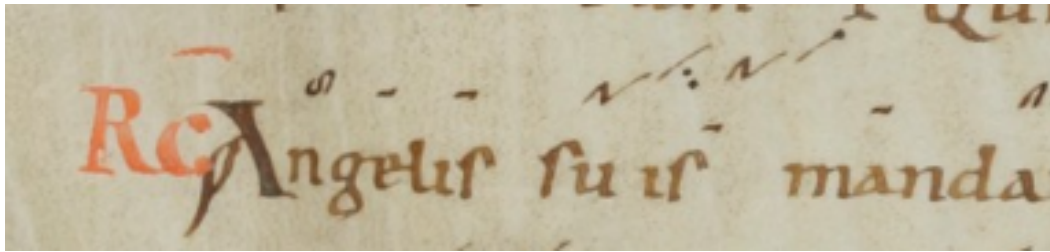 Rc Angelis su is manda